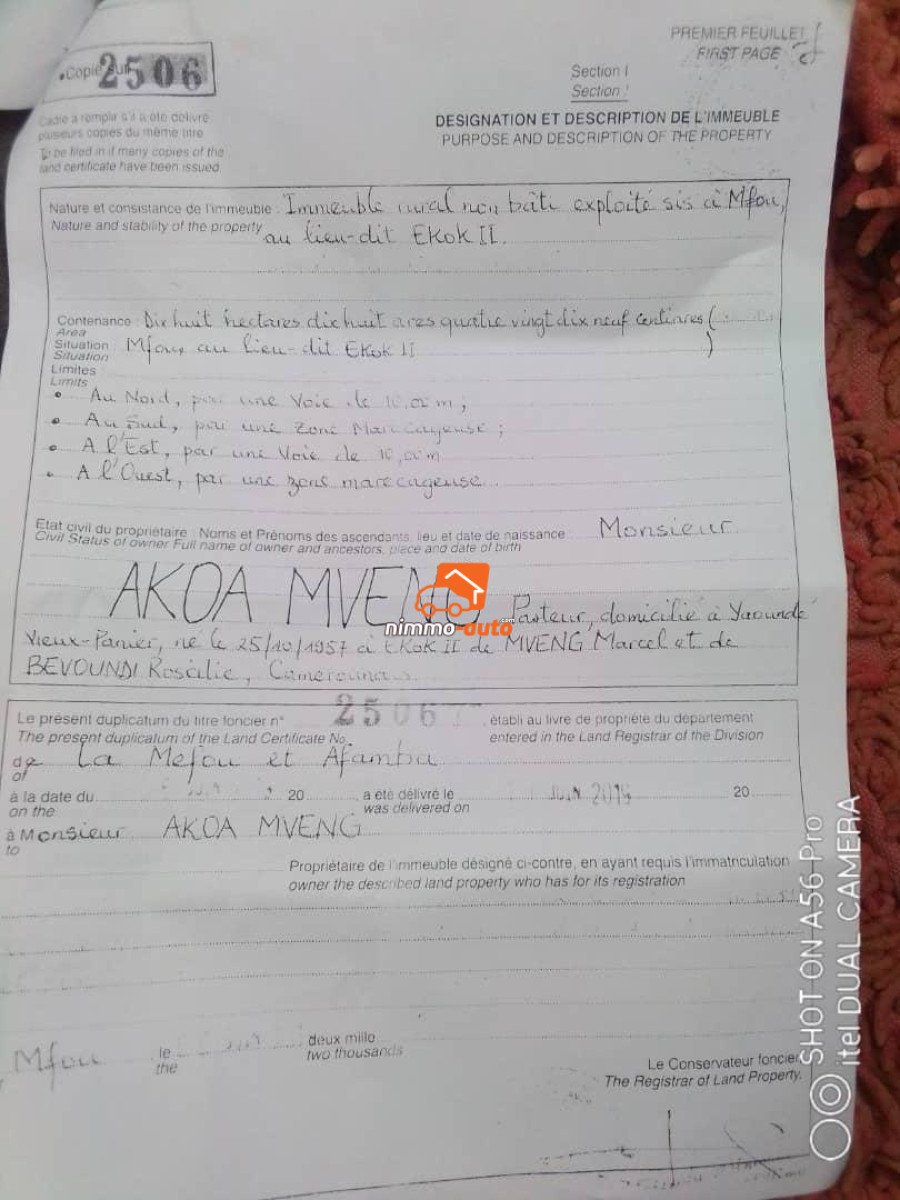 PREMIER FEUILLET
FIRST PAGE
Copie 2506
Section I
Section I
Cadre à remplir s'il a été délivré
plusieurs copies du même titre
To be filed in if many copies of the
land certificate have been issued.
DESIGNATION ET DESCRIPTION DE L'IMMEUBLE
PURPOSE AND DESCRIPTION OF THE PROPERTY
Nature et consistance de l'immeuble : Immeuble rural non bâti exploité sis à Mfou,
Nature and stability of the property
au lieu-dit EKOK II.
Contenance : Dix huit hectares dix huit ares quatre vingt dix neuf centiares (
Area
Situation : Mfou au lieu-dit EKOK II )
Situation
Limites
Limits
• Au Nord, par une Voie de 10,00m ;
• Au Sud, par une Zone Marécageuse ;
• A l'Est, par une Voie de 10,00m
• A l'Ouest, par une zone marecageuse
Etat civil du propriétaire : Noms et Prénoms des ascendants, lieu et date de naissance : Monsieur
Civil Status of owner Full name of owner and ancestors, place and date of birth
AKOA MVENG Pasteur, domicilié à Yaoundé
nimmo-auto.com
Vieux-Panier, né le 25/10/1957 à EKOK II de MVENG Marcel et de
BEVOUNDI Rosalie, Camerounais
Le présent duplicatum du titre foncier n° 2506 établi au livre de propriété du département
The present duplicatum of the Land Certificate No. entered in the Land Registrar of the Division
de La Mefou et Afamba
of
à la date du 20 a été délivré le 20
on the was delivered on
à Monsieur AKOA MVENG
to
Propriétaire de l'immeuble désigné ci-contre, en ayant requis l'immatriculation
owner the described land property who has for its registration
Mfou le deux mille
the two thousands
Le Conservateur foncier
The Registrar of Land Property.
SHOT ON A56 Pro
itel DUAL CAMERA